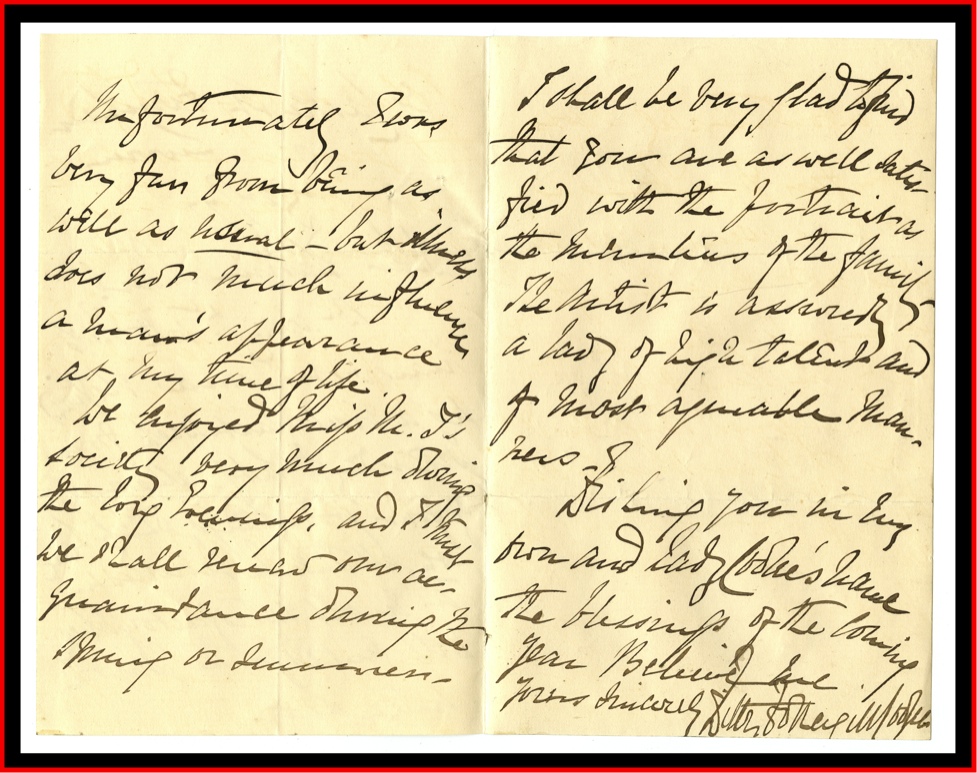 Unfortunately I was
very far from being as
well as usual - but illness
does not much influence
a man's appearance
at my time of life.
We enjoyed Miss M. I's
society very much during
the long Evenings, and I trust
we shall renew our ac-
quaintance during the
Spring or Summer -
I shall be very glad to find
that you are as well satis-
fied with the portrait as
the members of the family
The Artist is assuredly
a lady of high talent and
of most agreeable man-
ners -
Wishing you in my
own and Lady Cooke's name
the blessings of the Coming
Year Believe me
yours sincerely Fothergill Cooke